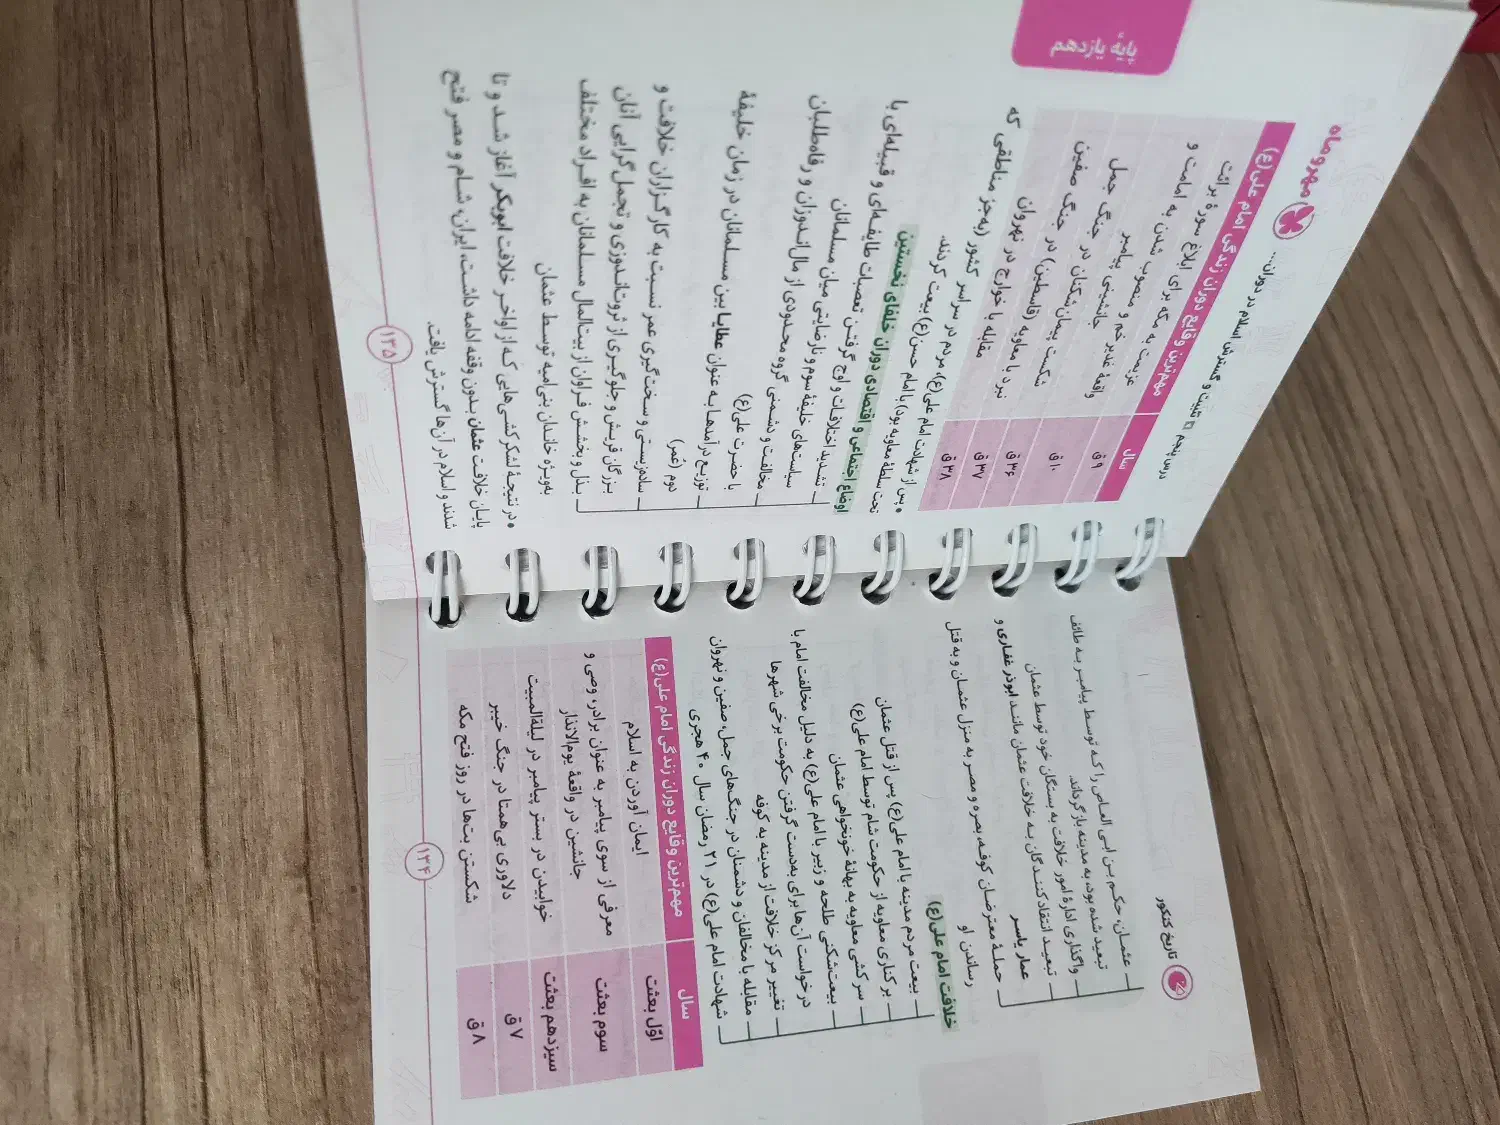 تاریخ کنکور
عثمـان، حکـم بـن ابی العـاص را کـه توسـط پیامبـر بـه طائف
تبعید شده بود، به مدینه بازگرداند.
واگذاری ادارهٔ امور خلافت به بستگان خود توسط عثمان
تبعیـد انتقادکننـدگان بـه خلافت عثمان مانند ابوذر غفاری و
عمار یاسر
حملـهٔ معترضـان کوفـه، بصره و مصـر به منزل عثمـان و به قتل
رساندن او
خلافت امام علی(ع)
بیعت مردم مدینه با امام علی(ع) پس از قتل عثمان
برکناری معاویه از حکومت شام توسط امام علی(ع)
سرکشی معاویه به بهانهٔ خونخواهی عثمان
بیعت‌شکنی طلحه و زبیر با امام علی(ع) به دلیل مخالفت امام با
درخواست آن‌ها برای به‌دست گرفتن حکومت برخی شهرها
تغییر مرکز خلافت از مدینه به کوفه
مقابله با مخالفان و دشمنان در جنگ‌های جمل، صفین و نهروان
شهادت امام علی(ع) در ۲۱ رمضان سال ۴۰ هجری
سال مهم‌ترین وقایع دوران زندگی امام علی(ع)
اوّل بعثت ایمان آوردن به اسلام
سوم بعثت معرفی از سوی پیامبر به عنوان برادر، وصی و
جانشین در واقعهٔ یوم‌الانذار
سیزدهم بعثت خوابیدن در بستر پیامبر در لیلةالمبیت
۷ ق دلاوری بی‌همتا در جنگ خیبر
۸ ق شکستن بت‌ها در روز فتح مکه
۱۳۴
مهروماه
درس پنجم تثبیت و گسترش اسلام در دوران...
پایهٔ یازدهم
سال مهم‌ترین وقایع دوران زندگی امام علی(ع)
۹ ق عزیمت به مکه برای ابلاغ سورهٔ برائت
۱۰ ق واقعهٔ غدیر خم و منصوب شدن به امامت و
جانشینی پیامبر
۳۶ ق شکست پیمان‌شکنان در جنگ جمل
۳۷ ق نبرد با معاویه (قاسطین) در جنگ صفین
۳۸ ق مقابله با خوارج در نهروان
• پس از شهادت امام علی(ع)، مردم در سراسر کشور (به‌جز مناطقی که
تحت سلطهٔ معاویه بود) با امام حسن(ع) بیعت کردند.
اوضاع اجتماعی و اقتصادی دوران خلفای نخستین
تشـدید اختلافـات و اوج گرفتـن تعصبات طایفـه‌ای و قبیله‌ای با
سیاست‌های خلیفهٔ سوم و نارضایتی میان مسلمانان
مخالفت و دشـمنی گروه محـدودی از مال‌انـدوزان و رفاه‌طلبان
با حضرت علی(ع)
توزیـع درآمدهـا بـه عنوان عطایـا بین مسـلمانان در زمان خلیفهٔ
دوم (عُمر)
سـاده‌زیستی و سـخت‌گیری عمر نسـبت به کارگـزاران خلافت و
بـزرگان قریش و جلوگیـری از ثروت‌انـدوزی و تجمل‌گرایی آنان
بـذل و بخشـش فـراوان از بیت‌المال مسـلمانان به افـراد مختلف
به‌ویـژه خانـدان بنی‌امیه توسـط عثمان
• در نتیجـهٔ لشکرکشی‌هایی که از اواخـر خلافت ابوبکر آغاز شـد و تا
پایـان خلافت عثمان بـدون وقفه ادامه داشـت، ایران، شـام و مصر فتح
شدند و اسلام در آن‌ها گسترش یافت.
۱۳۵